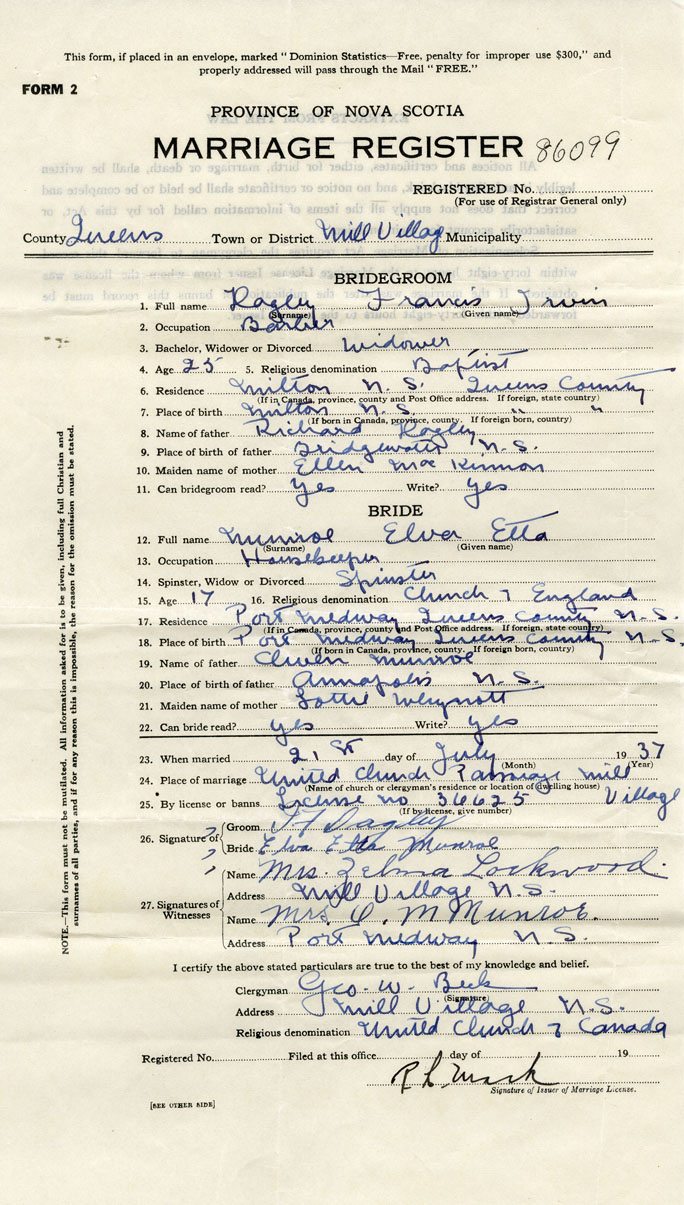 This form, if placed in an envelope, marked "Dominion Statistics—Free, penalty for improper use $300," and
properly addressed will pass through the Mail "FREE."
FORM 2
PROVINCE OF NOVA SCOTIA
MARRIAGE REGISTER 86099
REGISTERED No.
(For use of Registrar General only)
County Queens Town or District Mill Village Municipality
BRIDEGROOM
1. Full name Francis Irvin
(Surname) (Given name)
2. Occupation Barber
3. Bachelor, Widower or Divorced Widower
4. Age 25 5. Religious denomination Baptist
6. Residence Milton N.S. Queens County
(If in Canada, province, county and Post Office address. If foreign, state country)
7. Place of birth Milton N.S. " "
(If born in Canada, province, county. If foreign born, country)
8. Name of father Richard
9. Place of birth of father Bridgewater N.S.
10. Maiden name of mother Ellen MacKinnon
11. Can bridegroom read? Yes Write? Yes
BRIDE
12. Full name Munroe Elva Etta
(Surname) (Given name)
13. Occupation Housekeeper
14. Spinster, Widow or Divorced Spinster
15. Age 17 16. Religious denomination Church of England
17. Residence Port Medway Queens County N.S.
(If in Canada, province, county and Post Office address. If foreign, state country)
18. Place of birth Port Medway Queens County N.S.
(If born in Canada, province, county. If foreign born, country)
19. Name of father Munroe
20. Place of birth of father Annapolis N.S.
21. Maiden name of mother Lottie Whynott
22. Can bride read? Yes Write? Yes
23. When married 21st day of July 1937
(Month) (Year)
24. Place of marriage United Church Parsonage Mill
(Name of church or clergyman's residence or location of dwelling house)
25. By license or banns License no 36625 Village
(If by license, give number)
26. Signature of
Groom
Bride Elva Etta Munroe
27. Signatures of Witnesses
Name Mrs. Zelma Lockwood.
Address Mill Village N.S.
Name Mrs. C. M Munroe.
Address Port Medway N.S.
I certify the above stated particulars are true to the best of my knowledge and belief.
Clergyman Geo. W. Beck
(Signature)
Address Mill Village N.S.
Religious denomination United Church of Canada
Registered No. Filed at this office day of 19
Signature of Issuer of Marriage License.
[SEE OTHER SIDE]
NOTE.—This form must not be mutilated. All information asked for is to be given, including full Christian and
surnames of all parties, and if for any reason this is impossible, the reason for the omission must be stated.